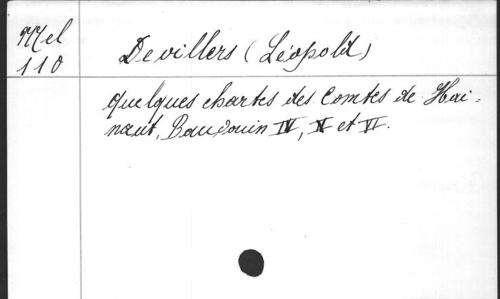 Mel
110
Devillers (Léopold)
quelques chartes des Comtes de Hai-
naut, Baudouin IV, V et VI.